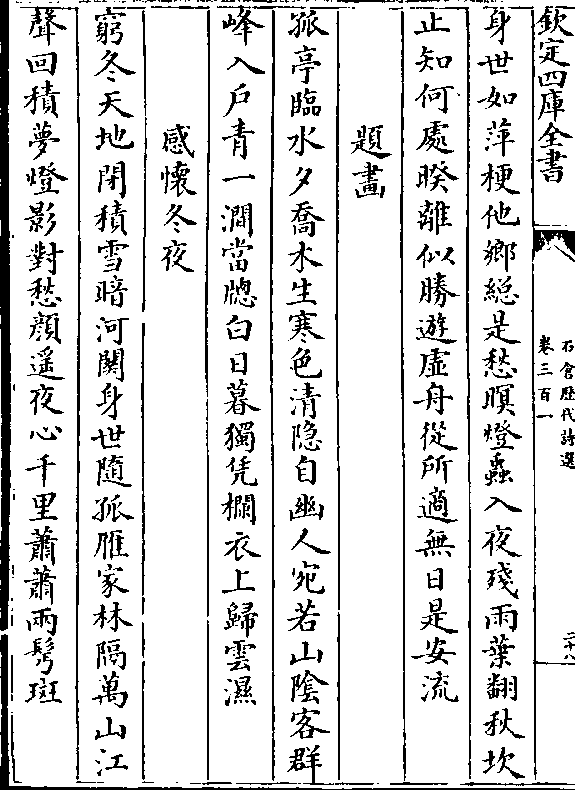 欽定四庫全書
石倉歴代詩選
卷三百一
二十八
身世如萍梗他鄉總是愁暝燈蟲入夜殘雨葉翻秋坎
止知何處暌離似勝遊虚舟從所適無日是安流
題畫
孤亭臨水夕喬木生寒色清隐自幽人宛若山陰客群
峰入戶青一澗當牕白日暮獨凭欄衣上歸雲濕
感懷冬夜
窮冬天地閉積雪暗河關身世隨孤雁家林隔萬山江
聲回積夢燈影對愁顔遥夜心千里蕭蕭兩鬢斑